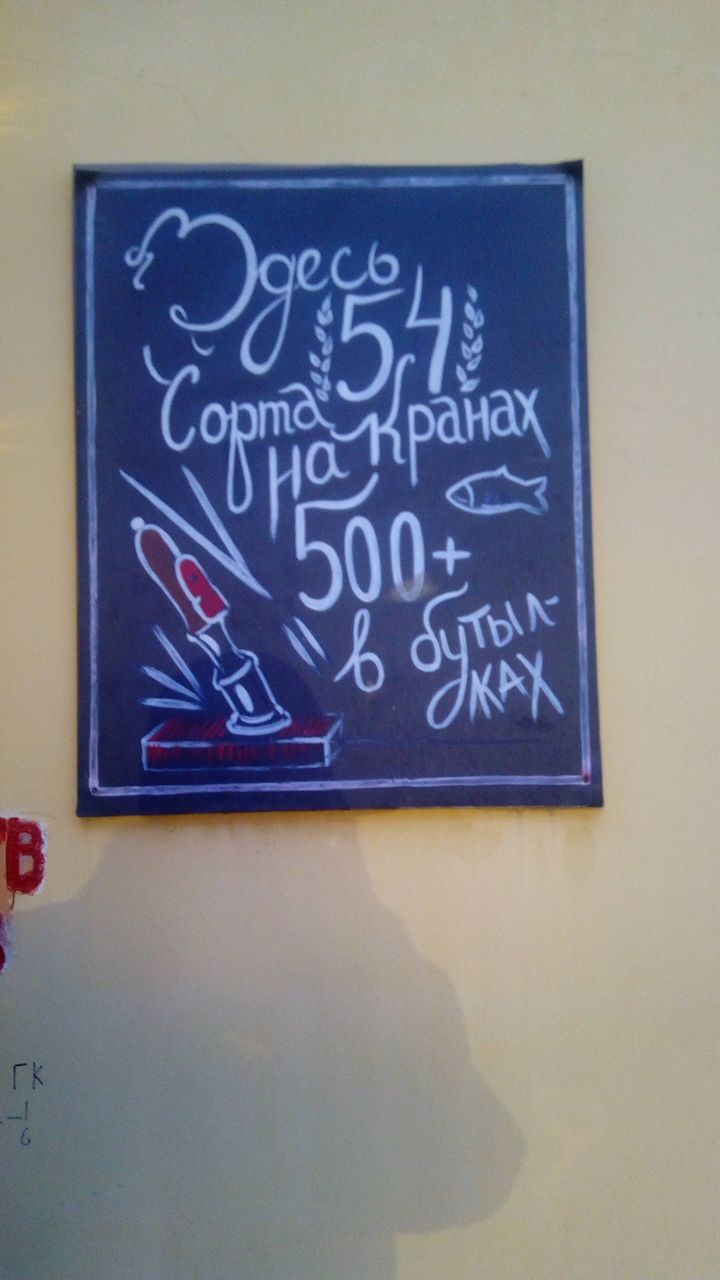 Здесь
54
Сорта
на кранах
500+
в бутыл-
ках
ТВ
ГК
1
6